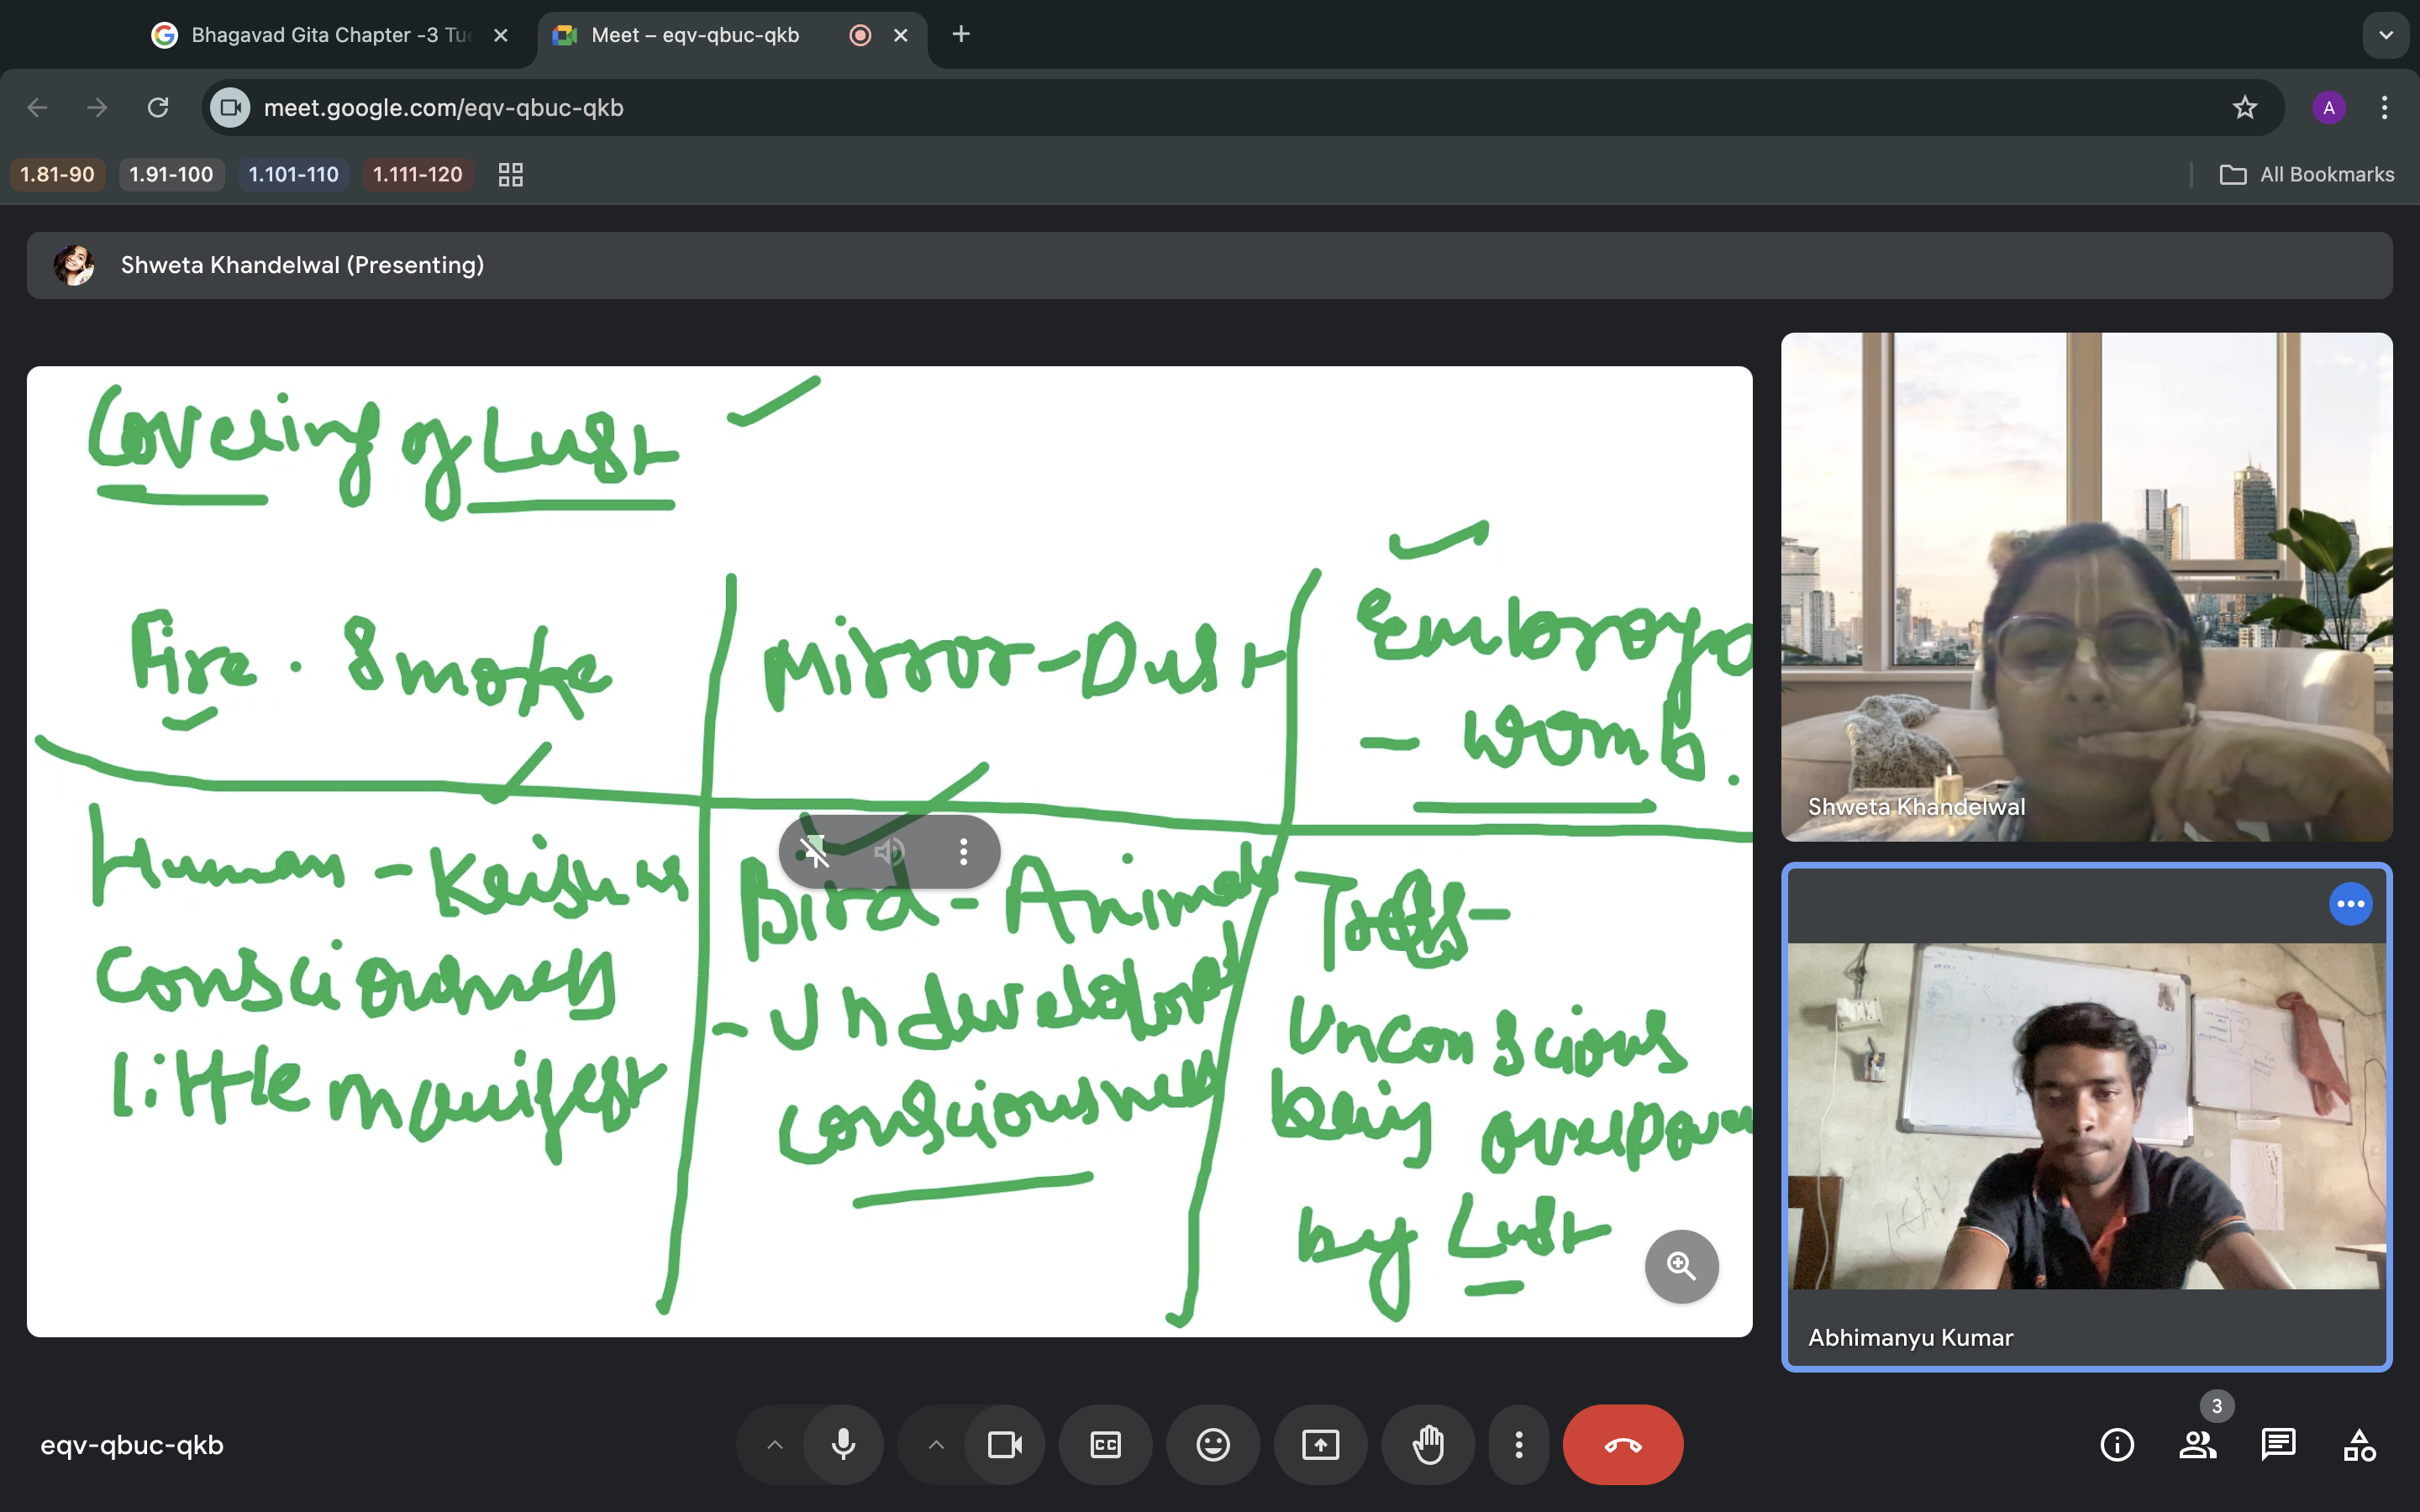 Bhagavad Gita Chapter -3 Tue
Meet – eqv-qbuc-qkb
meet.google.com/eqv-qbuc-qkb
A
1.81-90
1.91-100
1.101-110
1.111-120
All Bookmarks
Shweta Khandelwal (Presenting)
Covering of Lust
Fire - Smoke
Mirror - Dust
Embroyo
- womb.
Human - Krishna
Consciousness
little manifest
Bird - Animals
- Undeveloped
consciousness
Trees -
Unconscious
being overpowe
by Lust
Shweta Khandelwal
Abhimanyu Kumar
eqv-qbuc-qkb
CC
3